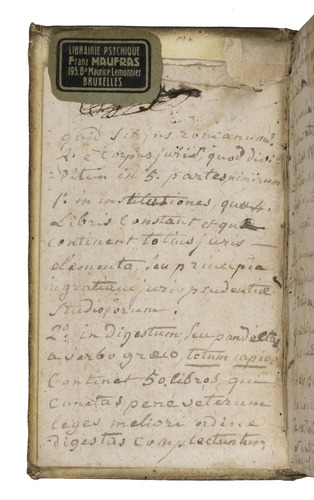 LIBRAIRIE PSYCHIQUE
Franz MAUFRAS
195, Bd Maurice Lemonnier
BRUXELLES
quid sit jus romanum?
2° corpus juris quod divi
in 5. partes nimirum
1° in institutiones, quae 4.
Libris constant et quae
continent totius juris
elementa, seu principia
in gratiam jurisprudentiae
studiosorum.
2° in digestum, seu pandectas
a verbo graeco totum capio
Continet 50. libros, qui
cunctas pene veterum
leges meliori ordine
digestas complectuntur